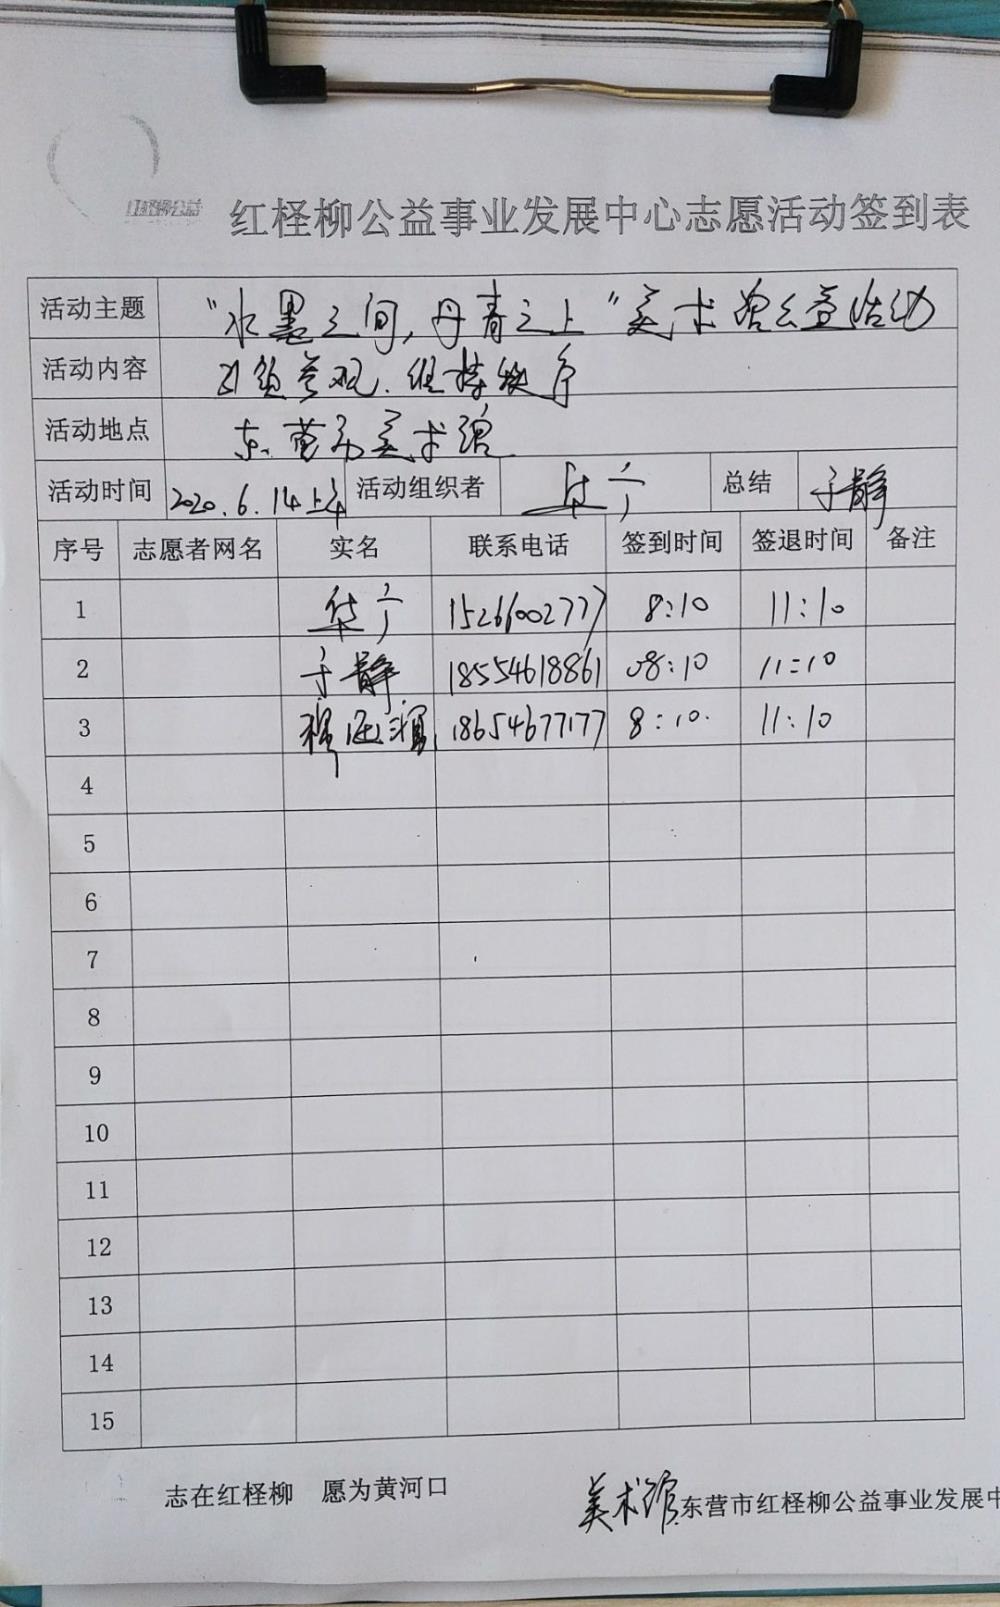 红柽柳公益
红柽柳公益事业发展中心志愿活动签到表
活动主题 "水墨之间,丹青之上"美术馆公益活动
活动内容 引领参观、维持秩序
活动地点 东营市美术馆
活动时间 2020.6.14上午 活动组织者 华宁 总结 于静
序号 志愿者网名 实名 联系电话 签到时间 签退时间 备注
1 华宁 15266002777 8:10 11:10
2 于静 18554618861 08:10 11:10
3 18654677177 8:10. 11:10
4
5
6
7
8
9
10
11
12
13
14
15
志在红柽柳 愿为黄河口
美术馆 东营市红柽柳公益事业发展中